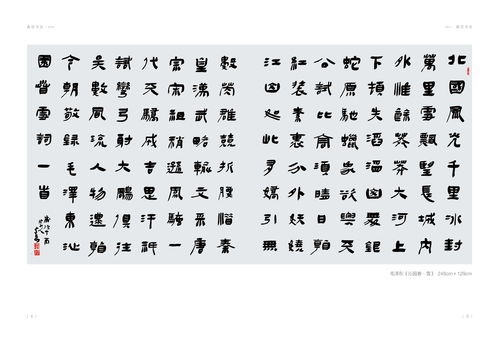 北國風光千里冰封
萬里雪飄望長城內
外惟餘莽莽大河上
下頓失滔滔山舞銀
蛇原馳蠟象欲與天
公試比高須晴日看
紅裝素裹分外妖嬈
江山如此多嬌引無
數英雄競折腰惜秦
皇漢武略輸文采唐
宗宋祖稍遜風騷一
代天驕成吉思汗祇
識彎弓射大鵰俱往
矣數風流人物還看
今朝敬錄毛澤東沁
園春雪詞一首
毛泽东《沁园春·雪》